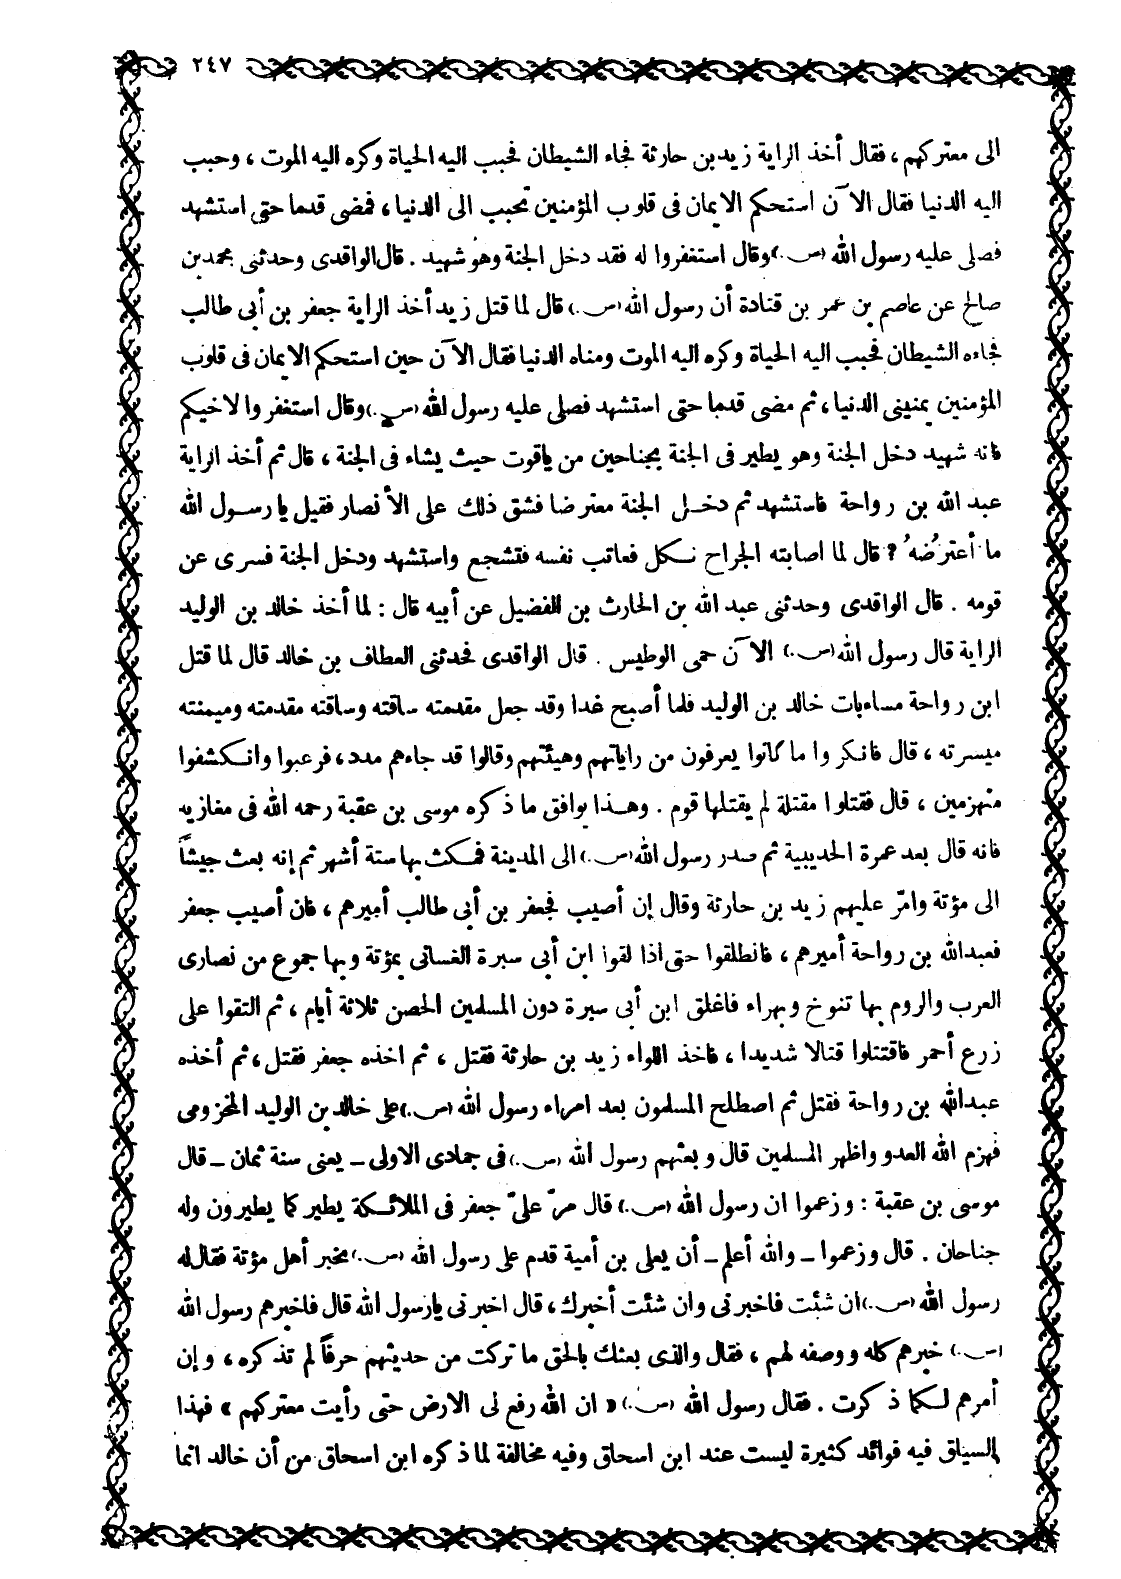 ٢٤٧
الى معتركهم ، فقال أخذ الراية زيد بن حارثة فجاء الشيطان فحبب اليه الحياة وكره اليه الموت ، وحبب
اليه الدنيا فقال الآن استحكم الايمان فى قلوب المؤمنين تحبب الى الدنيا ، فمضى قدما حتى استشهد
فصلى عليه رسول الله (ص.) وقال استغفروا له فقد دخل الجنة وهو شهيد . قال الواقدى وحدثنى محمد بن
صالح عن عاصم بن عمر بن قتادة أن رسول الله (ص.) قال لما قتل زيد أخذ الراية جعفر بن أبى طالب
فجاءه الشيطان فحبب اليه الحياة وكره اليه الموت ومناه الدنيا فقال الآن حين استحكم الايمان فى قلوب
المؤمنين يمنينى الدنيا ، ثم مضى قدما حتى استشهد فصلى عليه رسول الله (ص.) وقال استغفروا لاخيكم
فانه شهيد دخل الجنة وهو يطير فى الجنة بجناحين من ياقوت حيث يشاء فى الجنة ، قال ثم أخذ الراية
عبد الله بن رواحة فاستشهد ثم دخل الجنة معترضا فشق ذلك على الأنصار فقيل يا رسول الله
ما أعترضُهُ ؟ قال لما اصابته الجراح نكل فعاتب نفسه فتشجع واستشهد ودخل الجنة فسرى عن
قومه . قال الواقدى وحدثنى عبد الله بن الحارث بن الفضيل عن أبيه قال : لما أخذ خالد بن الوليد
الراية قال رسول الله (ص.) الآن حمى الوطيس . قال الواقدى فحدثنى العطاف بن خالد قال لما قتل
ابن رواحة مساءبات خالد بن الوليد فلما أصبح غدا وقد جعل مقدمته ساقته وساقته مقدمته وميمنته
ميسرته ، قال فانكروا ما كانوا يعرفون من راياتهم وهيئتهم وقالوا قد جاءهم مدد ، فرعبوا وانكشفوا
منهزمين ، قال فقتلوا مقتلة لم يقتلها قوم . وهذا يوافق ما ذكره موسى بن عقبة رحمه الله فى مغازيه
فانه قال بعد عمرة الحديبية ثم صدر رسول الله (ص.) الى المدينة فمكث بها ستة أشهر ثم إنه بعث جيشاً
الى مؤتة وامّر عليهم زيد بن حارثة وقال إن أصيب فجعفر بن أبى طالب أميرهم ، فان أصيب جعفر
فعبدالله بن رواحة أميرهم ، فانطلقوا حتى اذا لقوا ابن أبى سبرة الغسانى بمؤتة وبها جموع من نصارى
العرب والروم بها تنوخ وبهراء فاغلق ابن أبى سبرة دون المسلمين الحصن ثلاثة أيام ، ثم التقوا على
زرع أحمر فاقتتلوا قتالا شديدا ، فاخذ اللواء زيد بن حارثة فقتل ، ثم اخذه جعفر فقتل ، ثم أخذه
عبدالله بن رواحة فقتل ثم اصطلح المسلمون بعد امراء رسول الله (ص.) على خالد بن الوليد المخزومى
فهزم الله العدو واظهر المسلمين قال وبعثهم رسول الله (ص.) فى جمادى الاولى ـ يعنى سنة ثمان ـ قال
موسى بن عقبة : وزعموا ان رسول الله (ص.) قال مرّ علىّ جعفر فى الملائكة يطير كما يطيرون وله
جناحان . قال وزعموا ـ والله أعلم ـ أن يعلى بن أمية قدم على رسول الله (ص.) بخبر أهل مؤتة فقال له
رسول الله (ص.) ان شئت فاخبرنى وان شئت أخبرك ، قال اخبرنى يارسول الله قال فاخبرهم رسول الله
(ص.) خبرهم كله ووصفه لهم ، فقال والذى بعثك بالحق ما تركت من حديثهم حرفاً لم تذكره ، وإن
أمرهم لكما ذكرت . فقال رسول الله (ص.) « ان الله رفع لى الارض حتى رأيت معتركهم » فهذا
السياق فيه فوائد كثيرة ليست عند ابن اسحاق وفيه مخالفة لما ذكره ابن اسحاق من أن خالد انما